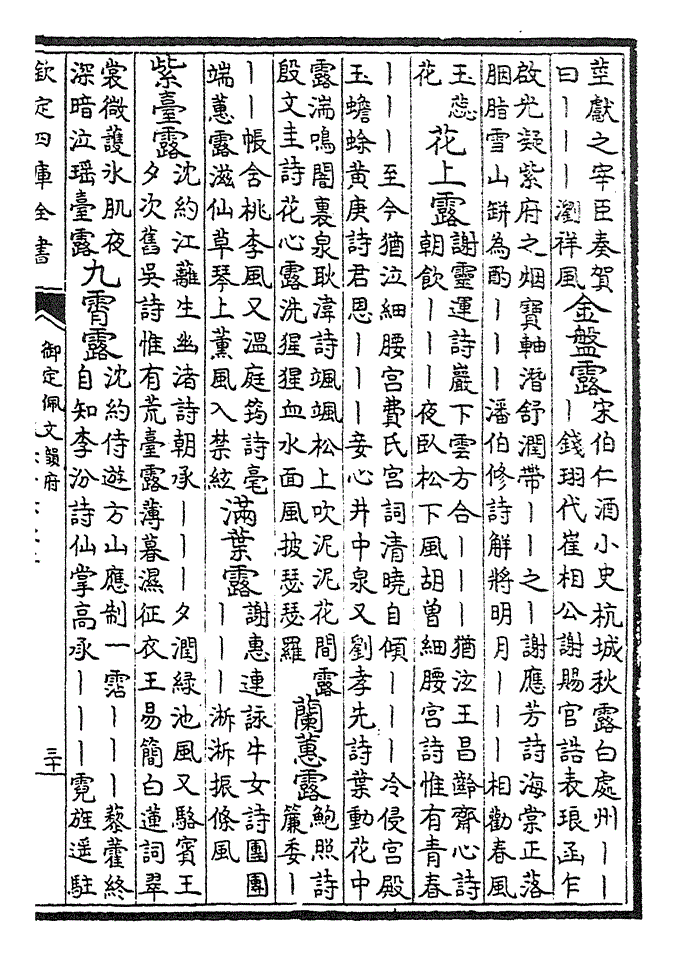 莖獻之宰臣奏賀
曰丨丨丨瀏祥風
金盤露
宋伯仁酒小史杭城秋露白處州丨丨
丨錢珝代崔相公謝賜官誥表琅函乍
啟光凝紫府之烟寶軸潛舒潤帶丨丨之丨謝應芳詩海棠正落
胭脂雪山缾為酌丨丨丨潘伯修詩解將明月丨丨丨相勸春風
玉蕊
花
花上露
謝靈運詩巖下雲方合丨丨丨猶泫王昌齡齋心詩
朝飲丨丨丨夜臥松下風胡曽細腰宮詩惟有青春
丨丨丨至今猶泣細腰宮費氏宮詞清曉自傾丨丨丨冷侵宮殿
玉蟾蜍黃庚詩君恩丨丨丨妾心井中泉又劉孝先詩葉動花中
露湍鳴闇裏泉耿湋詩颯颯松上吹泥泥花間露
殷文圭詩花心露洗猩猩血水面風披瑟瑟羅
蘭蕙露
鮑照詩
簾委丨
丨丨帳舍桃李風又溫庭筠詩毫
端蕙露滋仙草琴上薰風入禁絃
滿葉露
謝惠連詠牛女詩團團
丨丨丨淅淅振條風
紫臺露
沈約江蘺生幽渚詩朝承丨丨丨夕潤綠池風又駱賓王
夕次舊吳詩惟有荒臺露薄暮濕征衣王易簡白蓮詞翠
裳微護氷肌夜
深暗泣瑶臺露
九霄露
沈約侍遊方山應制一霑丨丨丨藜藿終
自知李汾詩仙掌高承丨丨丨霓旌遥駐
欽定四庫全書
御定佩文韻府
三十